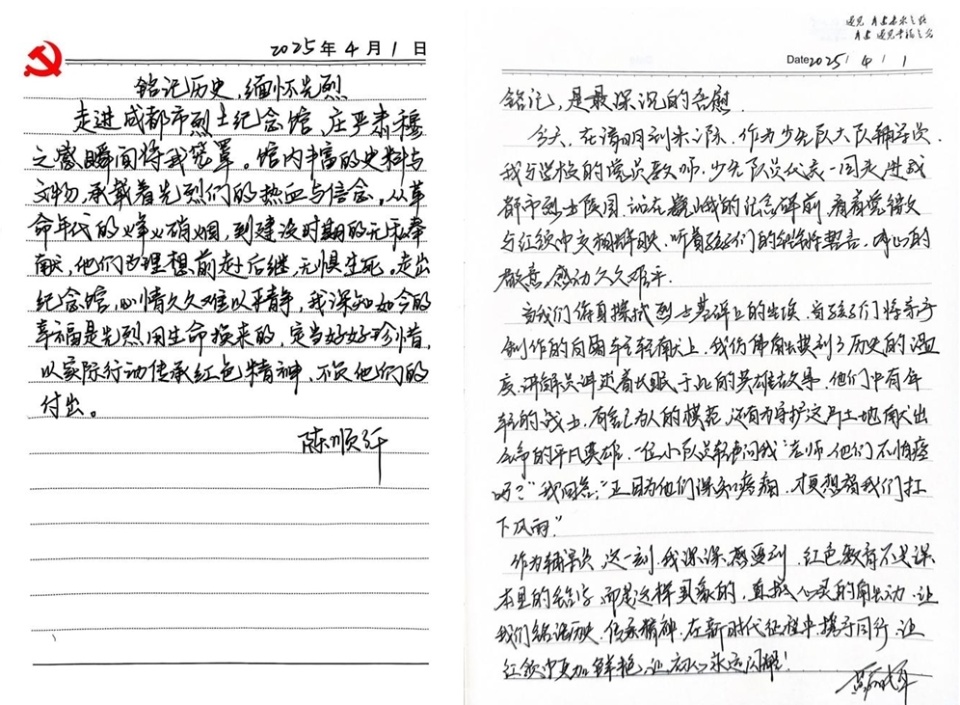 2025年4月1日
铭记历史，缅怀先烈
走进成都市烈士纪念馆，庄严肃穆
之感瞬间将我笼罩。馆内丰富的史料与
文物，承载着先烈们的热血与信念。从革
命年代的烽火硝烟，到建设时期的无私奉
献，他们为理想前赴后继，无惧生死。走出
纪念馆，心情久久难以平静，我深知如今的
幸福是先烈用生命换来的，定当好好珍惜，
以实际行动传承红色精神，不负他们的
付出。
陈顺
遇见
遇见幸福
Date 2025/4/1
铭记，是最深沉的告慰
今天，在清明到来之际，作为少先队大队辅导员，
我与学校的党员教师、少先队员代表一同走进成
都市烈士陵园，站在巍峨的纪念碑前，看着党徽
与红领巾交相辉映，听着孩子们的铮铮誓言，内心的
敬意、感动久久难平。
当我们俯身擦拭烈士墓碑上的尘埃，当孩子们将亲手
制作的白菊轻轻献上，我仿佛触摸到了历史的温
度。讲解员讲述着长眠于此的英雄故事，他们中有年
轻的战士，有舍己为人的模范，还有为守护这片土地献出
生命的平凡英雄。一位小队员轻声问我“老师，他们不怕疼
吗？”我回答：“正因为他们深知疼痛，才更想替我们扛
下风雨。”
作为辅导员，这一刻，我深深感受到，红色教育不是课
本里的铅字，而是这样具象的、直抵心灵的触动。让
我们铭记历史、传承精神，在新时代征程中携手同行，让
红领巾更加鲜艳，让初心永远闪耀！